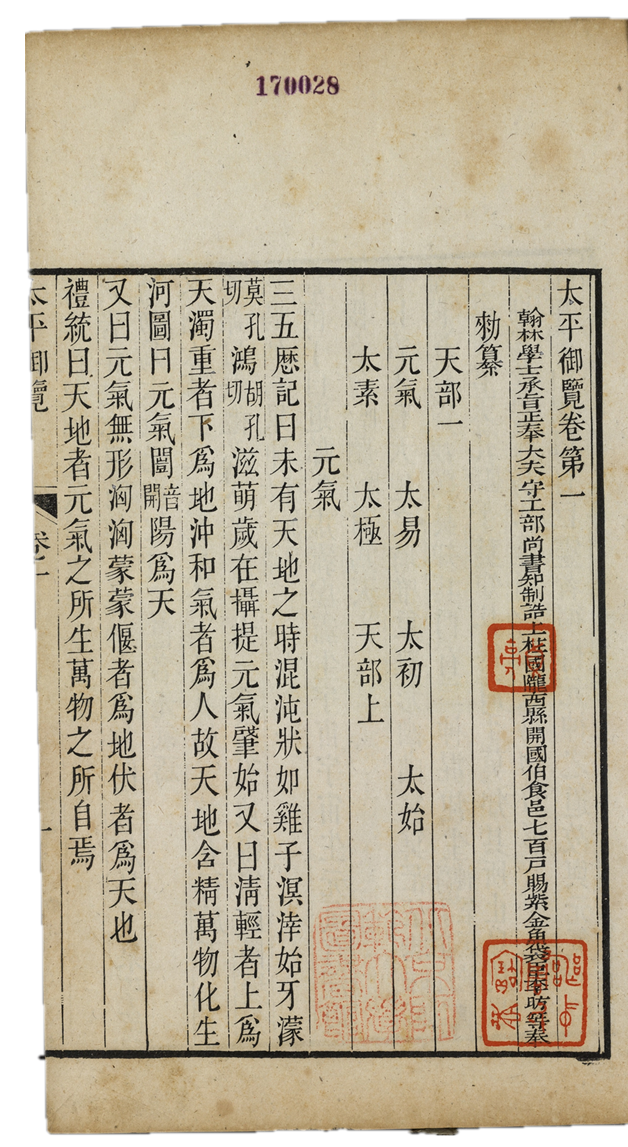 170028
太平御覽卷第一
翰林學士承旨正奉大夫守工部尚書知制誥上柱國隴西縣開國伯食邑七百戸賜紫金魚袋臣李昉等奉
勑纂
天部一
元氣 太易 太初 太始
太素 太極 天部上
元氣
三五厯記曰未有天地之時混沌狀如雞子溟涬始牙濛
莫孔切鴻胡孔切滋萌歲在攝提元氣肇始又曰清輕者上爲
天濁重者下爲地沖和氣者爲人故天地含精萬物化生
河圖曰元氣闓音開陽爲天
又曰元氣無形洶洶蒙蒙偃者爲地伏者爲天也
禮統曰天地者元氣之所生萬物之所自焉
太平御覽 卷一 一